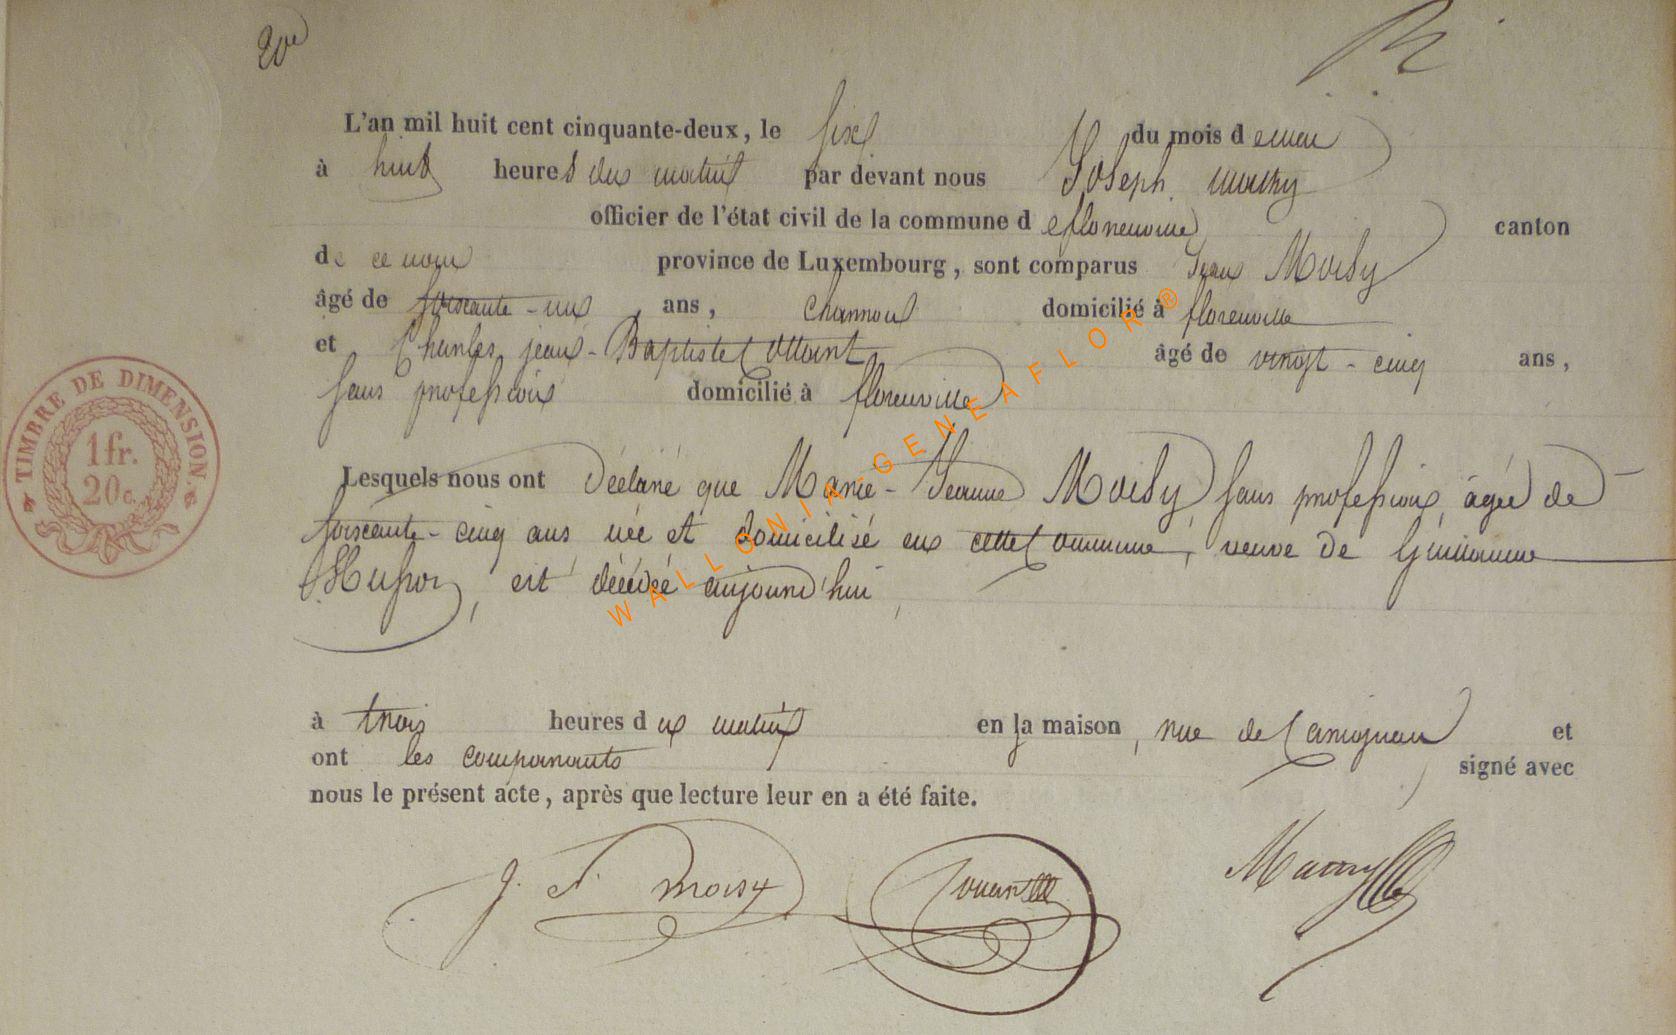 20e
L'an mil huit cent cinquante-deux, le six du mois de mai
à huit heures du matin par devant nous Joseph Mathy
officier de l'état civil de la commune de florenville canton
de ce nom province de Luxembourg, sont comparus Jean Moisy
âgé de soixante-un ans, charron domicilié à florenville
et Charles jean-Baptiste âgé de vingt-cinq ans,
sans profession domicilié à florenville
TIMBRE DE DIMENSION.
1 fr.
20 c.
Lesquels nous ont déclaré que Marie-Jeanne Moisy sans profession, âgée de
soixante-cinq ans née et domicilié en cette Commune, veuve de Guillaume
Husson, est décédé aujourd'hui,
à trois heures du matin en la maison, rue de Carignan et
ont les comparants signé avec
nous le présent acte, après que lecture leur en a été faite.
J. Moisy
WALLONIA-GENEAFLOR®